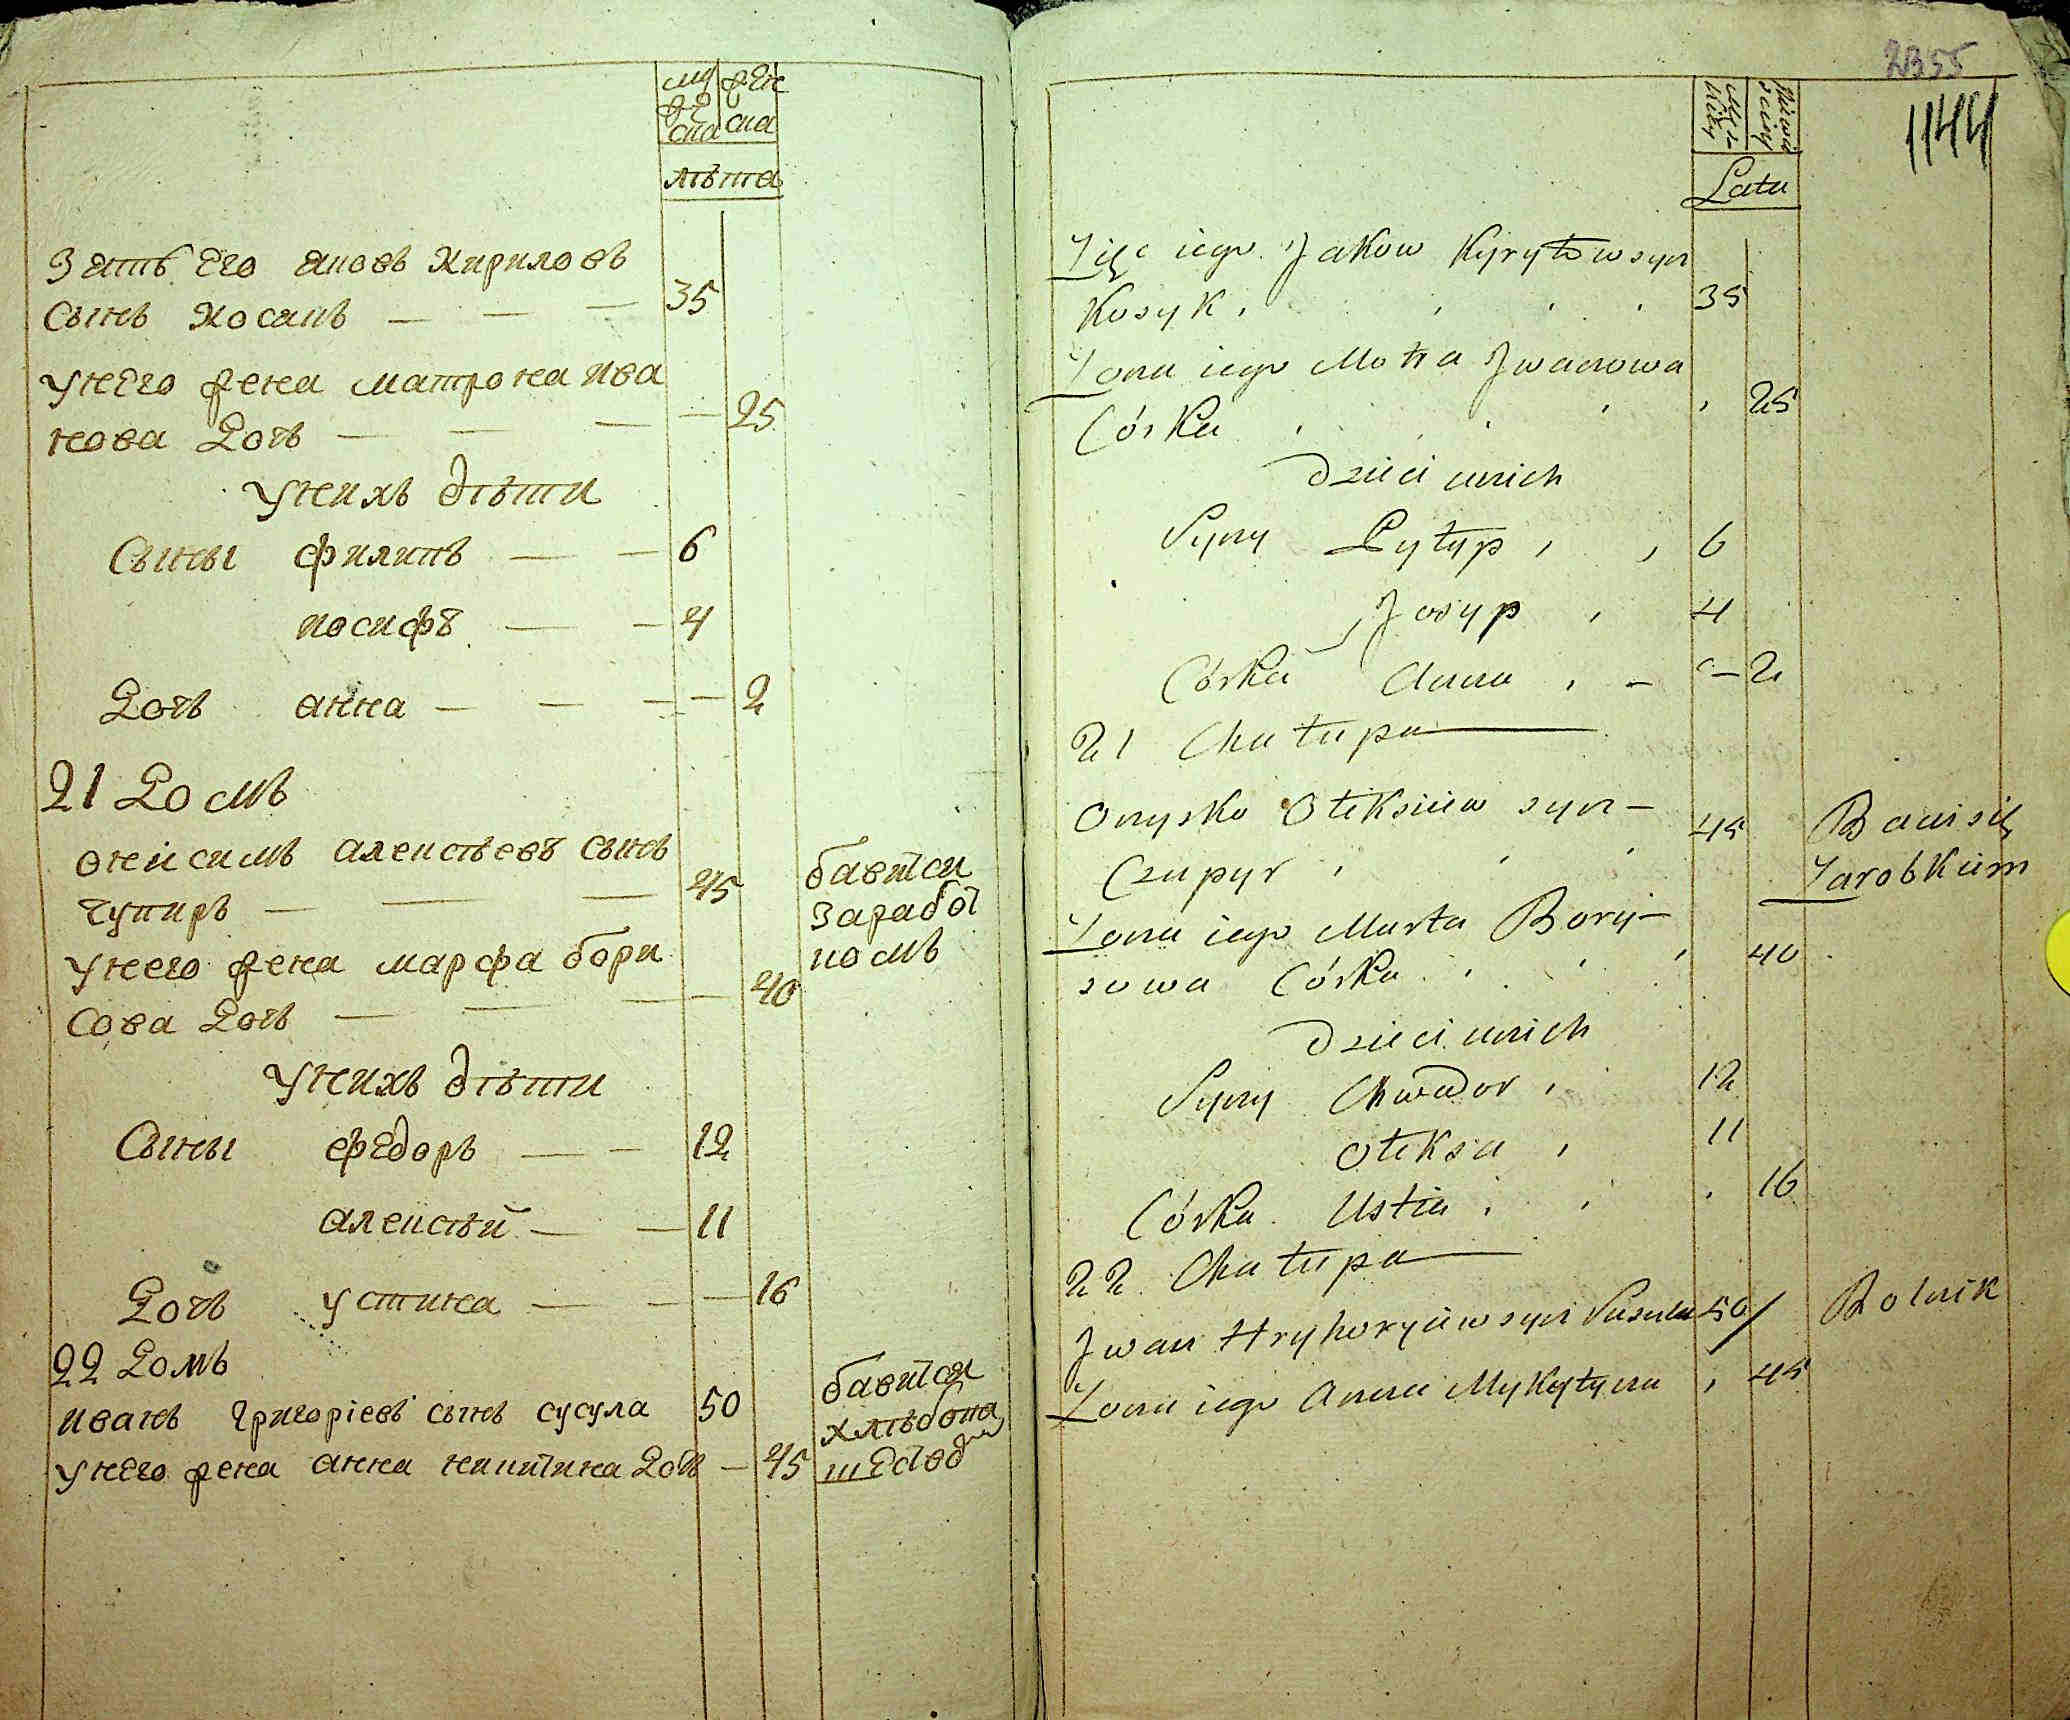 му жен
же ска
ска
лѣта
Зять Его яковъ Кириловъ
Сынъ Косакъ — — — 35
унего жена матрона ива
нова Дочь — — — — 25
унихъ дѣти
Сыны филипъ — — 6
иосифъ — — 4
Дочь анна — — — — 2
21 Домъ
онисимъ алексѣевъ сынъ
чупиръ — — — 45
бавится
заработ
комъ
унего жена марфа бори
сова Дочь — — — — 40
унихъ дѣти
Сыны ѳедоръ — — 12
алексѣй — — 11
Дочь устина — — — 16
22 Домъ
иванъ григоріевъ сынъ сусула 50
унего жена анна никитина Дочь — 45
бавится
хлѣбопа
шеством
2355
1144
Męz-
kiey
Niewie
sciey
Lata
Zięć iego Jakow Kyryłow syn
Kosyk 35
Żona iego Motra Jwanowa
Córka 25
Dzieci unich
Syny Pyłyp 6
Josyp 4
Córka Anna – – 2
21 Chałupa
Onysko Ołeksiiew syn –
Czupyr 45
Bawi się
Zarobkiem
Żona iego Marta Bory–
sowa Córka 40
Dzieci unich
Syny Chwedor 12
Ołeksa 11
Córka Ustia 16
22 Chałupa
Jwan Hryhoryiew syn Susuła 50
Rolnik
Żona iego Anna Mykytyna 45